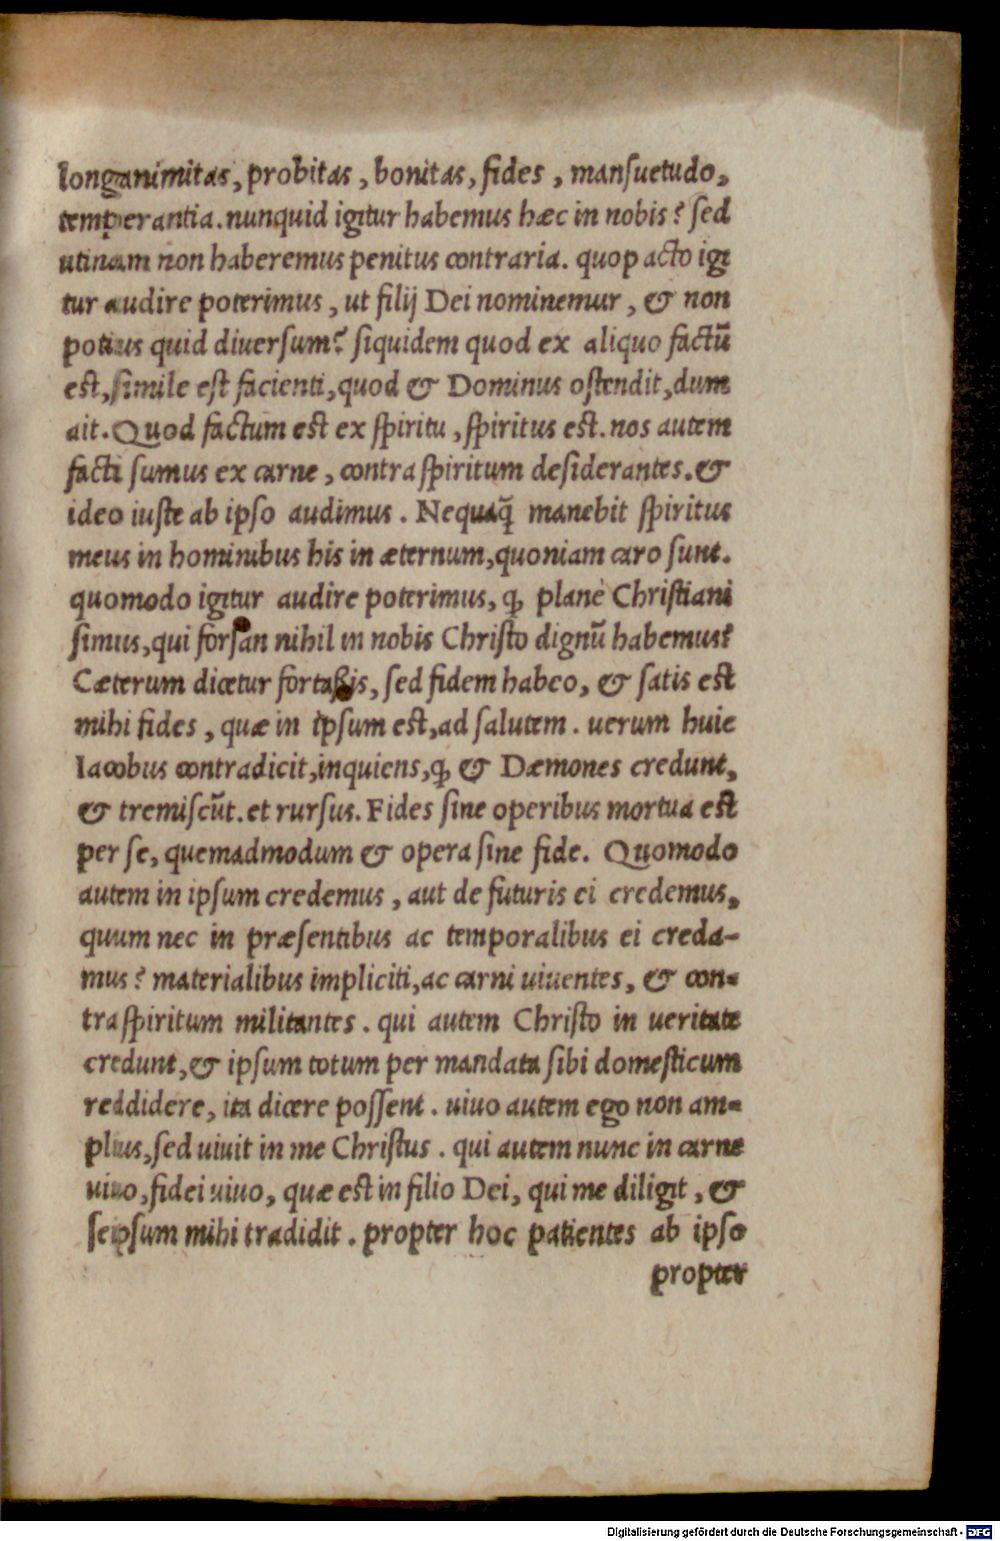 longanimitas, probitas, bonitas, fides, mansuetudo,
temperantia. nunquid igitur habemus hæc in nobis? sed
utinam non haberemus penitus contraria. quo pacto igi
tur audire poterimus, ut filij Dei nominemur, & non
potius quid diuersum? siquidem quod ex aliquo factũ
est, simile est facienti, quod & Dominus ostendit, dum
ait. Quod factum est ex spiritu, spiritus est. nos autem
facti sumus ex carne, contra spiritum desiderantes. &
ideo iuste ab ipso audimus. Nequaq̃ manebit spiritus
meus in hominibus his in æternum, quoniam caro sunt.
quomodo igitur audire poterimus, ꝙ plane Christiani
simus, qui forsan nihil in nobis Christo dignũ habemus?
Cæterum dicetur fortassis, sed fidem habeo, & satis est
mihi fides, quæ in ipsum est, ad salutem. uerum huic
Iacobus contradicit, inquiens, ꝙ & Dæmones credunt,
& tremiscũt. et rursus. Fides sine operibus mortua est
per se, quemadmodum & opera sine fide. Quomodo
autem in ipsum credemus, aut de futuris ei credemus,
quum nec in præsentibus ac temporalibus ei creda-
mus? materialibus impliciti, ac carni uiuentes, & con-
tra spiritum militantes. qui autem Christo in ueritate
credunt, & ipsum totum per mandata sibi domesticum
reddidere, ita dicere possent. uiuo autem ego non am-
plius, sed uiuit in me Christus. qui autem nunc in carne
uiuo, fidei uiuo, quæ est in filio Dei, qui me diligit, &
seipsum mihi tradidit. propter hoc patientes ab ipso
propter
Digitalisierung gefördert durch die Deutsche Forschungsgemeinschaft - DFG